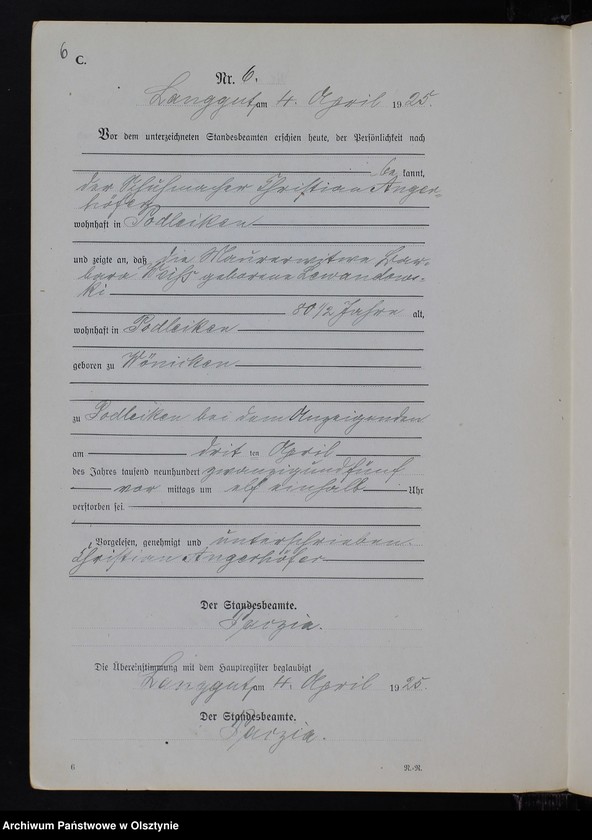 6
C.
Nr. 6.
Langgut, am 4. April 1925.
Vor dem unterzeichneten Standesbeamten erschien heute, der Persönlichkeit nach
be kannt,
der Schuhmacher Christian Anger-
höfer
wohnhaft in Podleiken
und zeigte an, daß die Maurerwitwe Bar-
bara geborene Lewandows-
ki
80 1/2 Jahre alt,
wohnhaft in Podleiken
geboren zu Wönicken
zu Podleiken bei dem Anzeigenden
am dritten April
des Jahres tausend neunhundert zwanzigundfünf
vor mittags um elf einhalb Uhr
verstorben sei.
Vorgelesen, genehmigt und unterschrieben.
Christian Angerhöfer
Der Standesbeamte.
Die Übereinstimmung mit dem Hauptregister beglaubigt
Langgut, am 4. April 1925.
Der Standesbeamte.
6
R.-R.
Archiwum Państwowe w Olsztynie